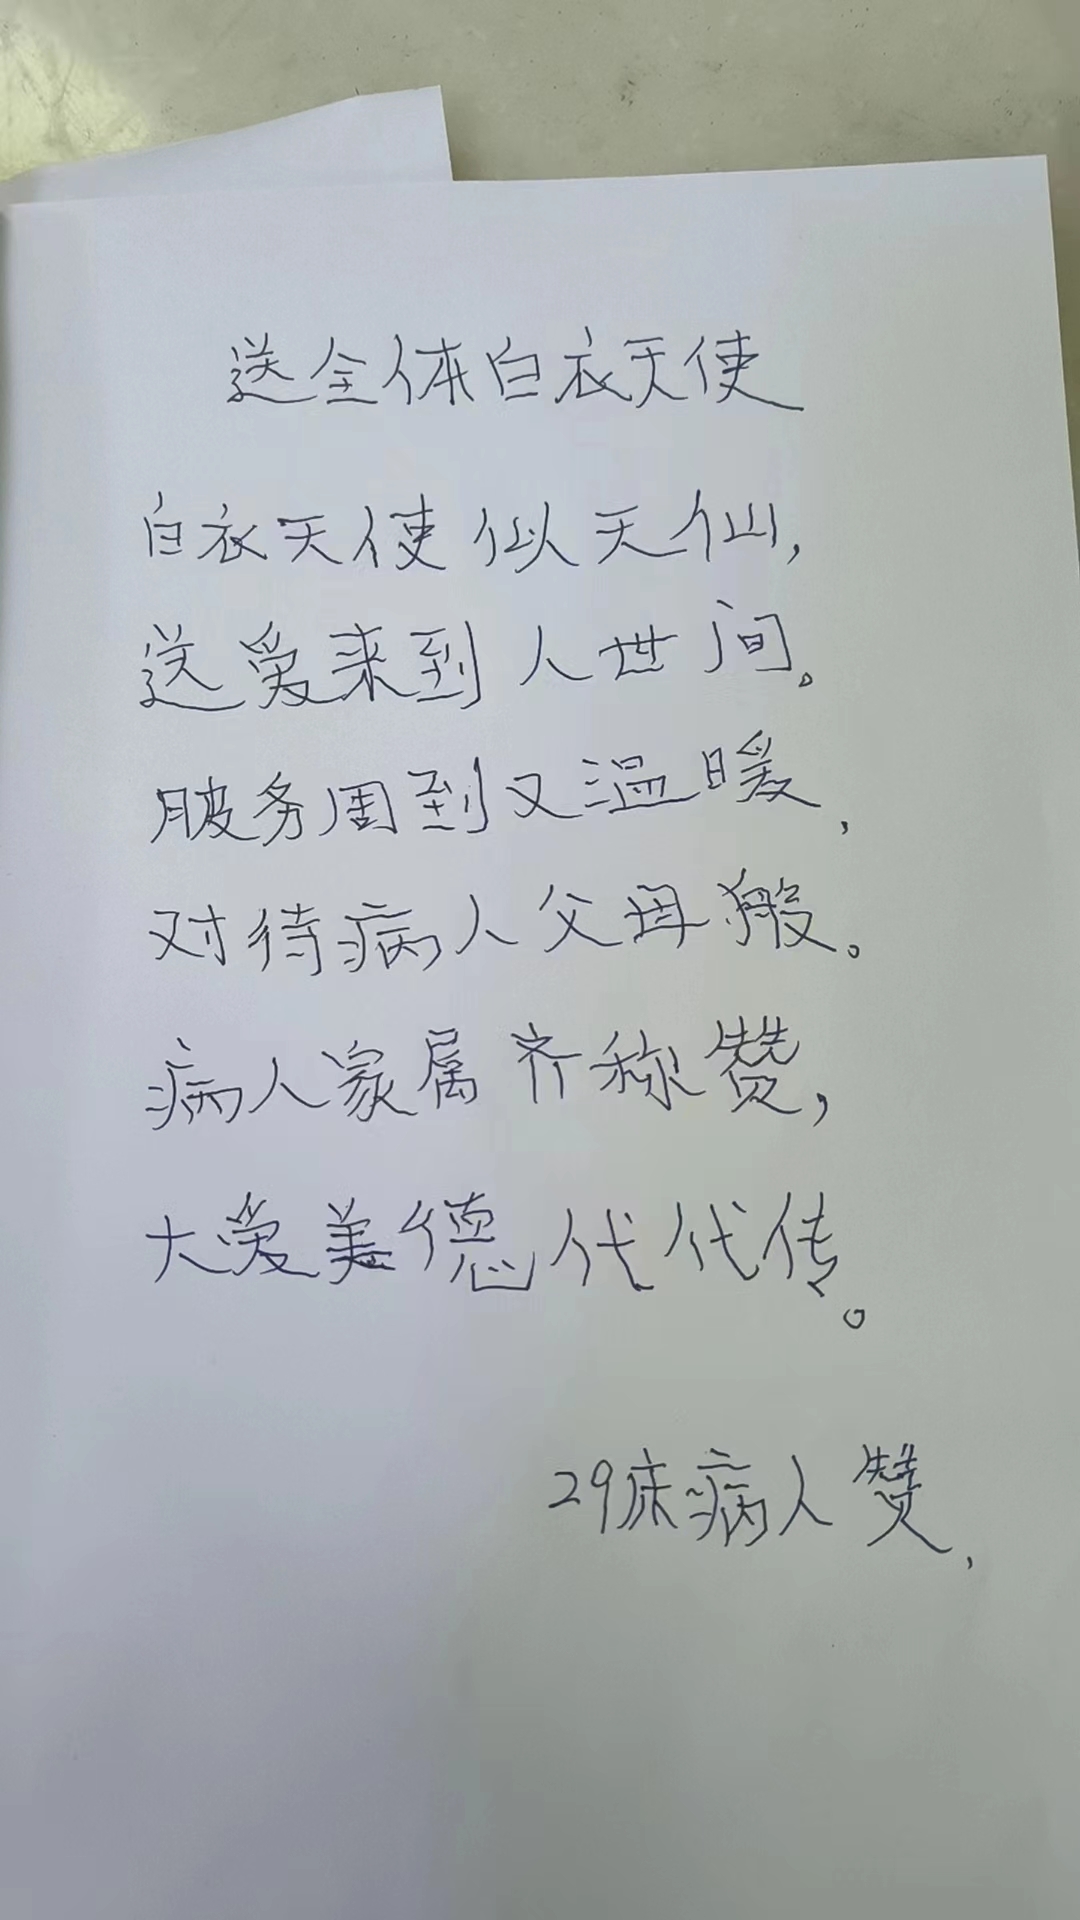 送全体白衣天使
白衣天使似天仙，
送爱来到人世间。
服务周到又温暖，
对待病人父母搬。
病人家属齐称赞，
大爱美德代代传。
29床病人赞，